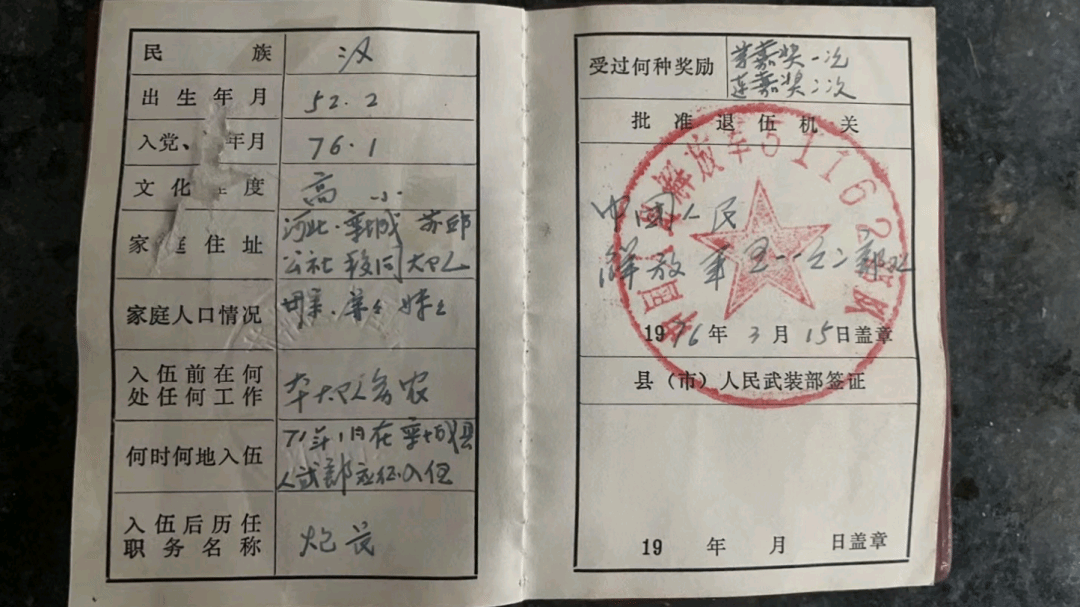 民族 汉
出生年月 52.2
入党、年月 76.1
文化程度 高小
家庭住址 河北·栾城 苏邱
公社 大队
家庭人口情况 母亲、弟弟 妹妹
入伍前在何
处任何工作 本大队务农
何时何地入伍 71年1月在栾城县
人武部应征入伍
入伍后历任
职务名称 炮长
受过何种奖励 营嘉奖一次
连嘉奖二次
批准退伍机关
中国人民解放军51162部队
中国人民
解放军五一一六二部队
1976年3月15日盖章
县（市）人民武装部签证
19 年 月 日盖章